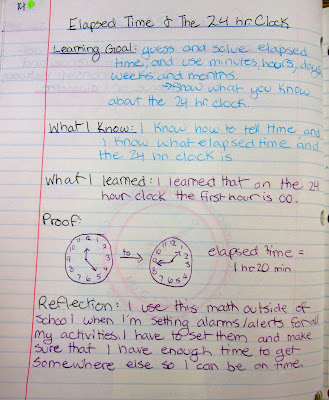 Elapsed Time & The 24 hr Clock
Learning Goal: guess and solve elapsed
time, and use minutes, hours, days,
weeks, and months.
→ Show what you know
about the 24 hr clock.
What I Know: I know how to tell time, and
I know what elapsed time and
the 24 hr clock is.
What I learned: I learned that on the 24
hour clock the first hour is 00.
Proof:
12 1 2 3 4 5 6 7 8 9 10 11
to
12 1 2 3 4 5 6 7 8 9 10 11
elapsed time =
1 hr 20 min.
Reflection: I use this math outside of
school when I'm setting alarms/alerts for all
my activities. I have to set them and make
sure that I have enough time to get
somewhere else so I can be on time.